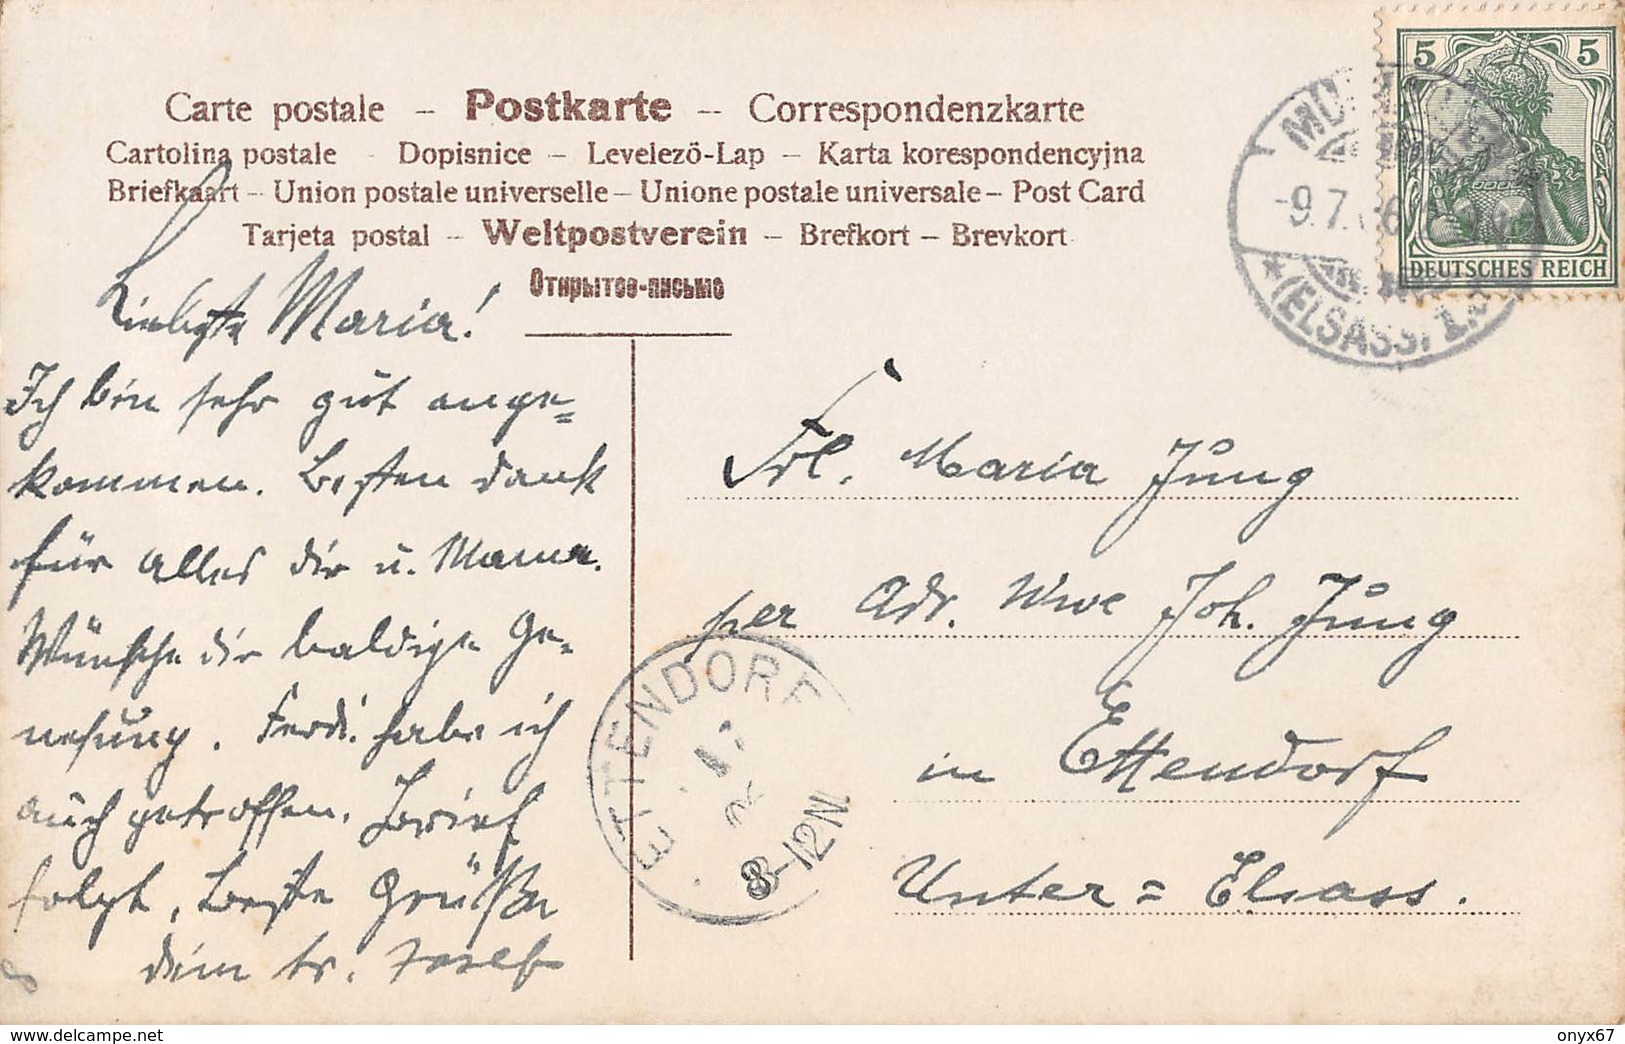 Carte postale – Postkarte – Correspondenzkarte
Cartolina postale – Dopisnice – Levelező-Lap – Karta korespondencyjna
Briefkaart – Union postale universelle – Unione postale universale – Post Card
Tarjeta postal – Weltpostverein – Brefkort – Brevkort
Открытое-письмо
5 5
DEUTSCHES REICH
-9.7.06
*(ELSASS)
Liebste Maria!
Ich bin sehr gut ange=
kommen. Besten Dank
für Alles dir u. Mama.
Wünsche dir baldige Ge-
nesung. Ferdi. habe ich
auch getroffen. Brief
folgt. Beste Grüße
dein tr. Josef
Frl. Maria Jung
per Adr. Wwe Joh. Jung
in Ettendorf
Unter = Elsass.
ETTENDORF
8-12N
delcampe.net
onyx67